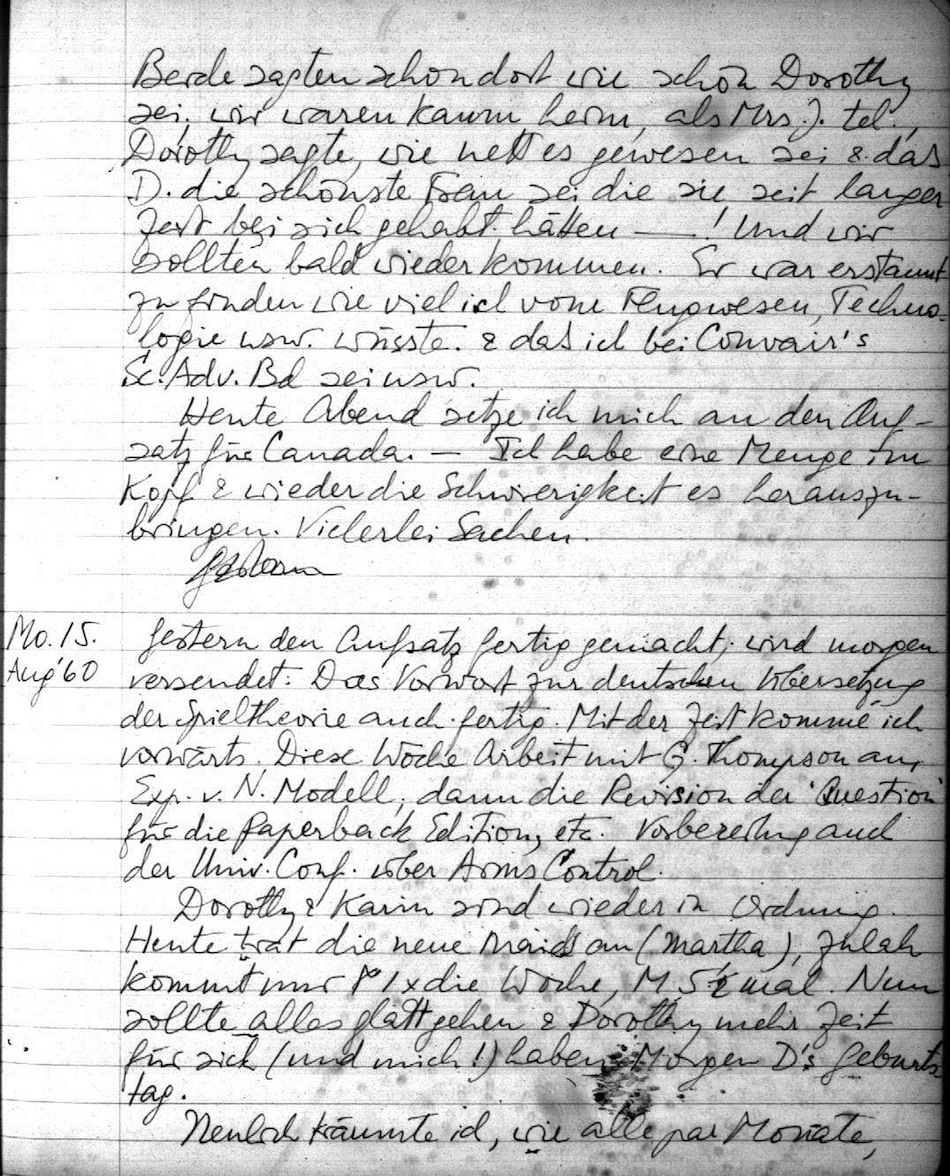 Beide sagten schon dort wie schön Dorothy
sei. Wir waren kaum heim, als Mrs. J. tel.,
Dorothy sagte, wie nett es gewesen sei & das
D. die schönste Frau sei die sie seit langer
Zeit bei sich gehabt hätten — ! Und wir
sollten bald wieder kommen. Er war erstaunt
zu finden wie viel ich vom Flugwesen, Techno-
logie usw. wüsste. & das ich bei Convair's
Sc. Adv. Bd sei usw.
Heute Abend setze ich mich an den Auf-
satz für Canada. — Ich habe eine Menge im
Kopf & wieder die Schwierigkeit es herauszu-
bringen. Vielerlei Sachen.
Mo. 15.
Aug '60
Gestern den Aufsatz fertig gemacht; wird morgen
versendet. Das Vorwort zur deutschen Übersetzung
der Spieltheorie auch fertig. Mit der Zeit komme ich
vorwärts. Diese Woche Arbeit mit G. Thompson am
Exp. v. N. Modell, dann die Revision der 'Question'
für die Paperback Edition, etc. Vorbereitung auch
der Univ. Conf. über Arms Control.
Dorothy & Karin sind wieder in Ordnung.
Heute trat die neue Maid an (Martha), Zulah
kommt nur 1x die Woche, M 5½ mal. Nun
sollte alles glatt gehen & Dorothy mehr Zeit
für sich (und mich!) haben. Morgen D's Geburts
tag.
Neulich träumte ich, wie alle par Monate,